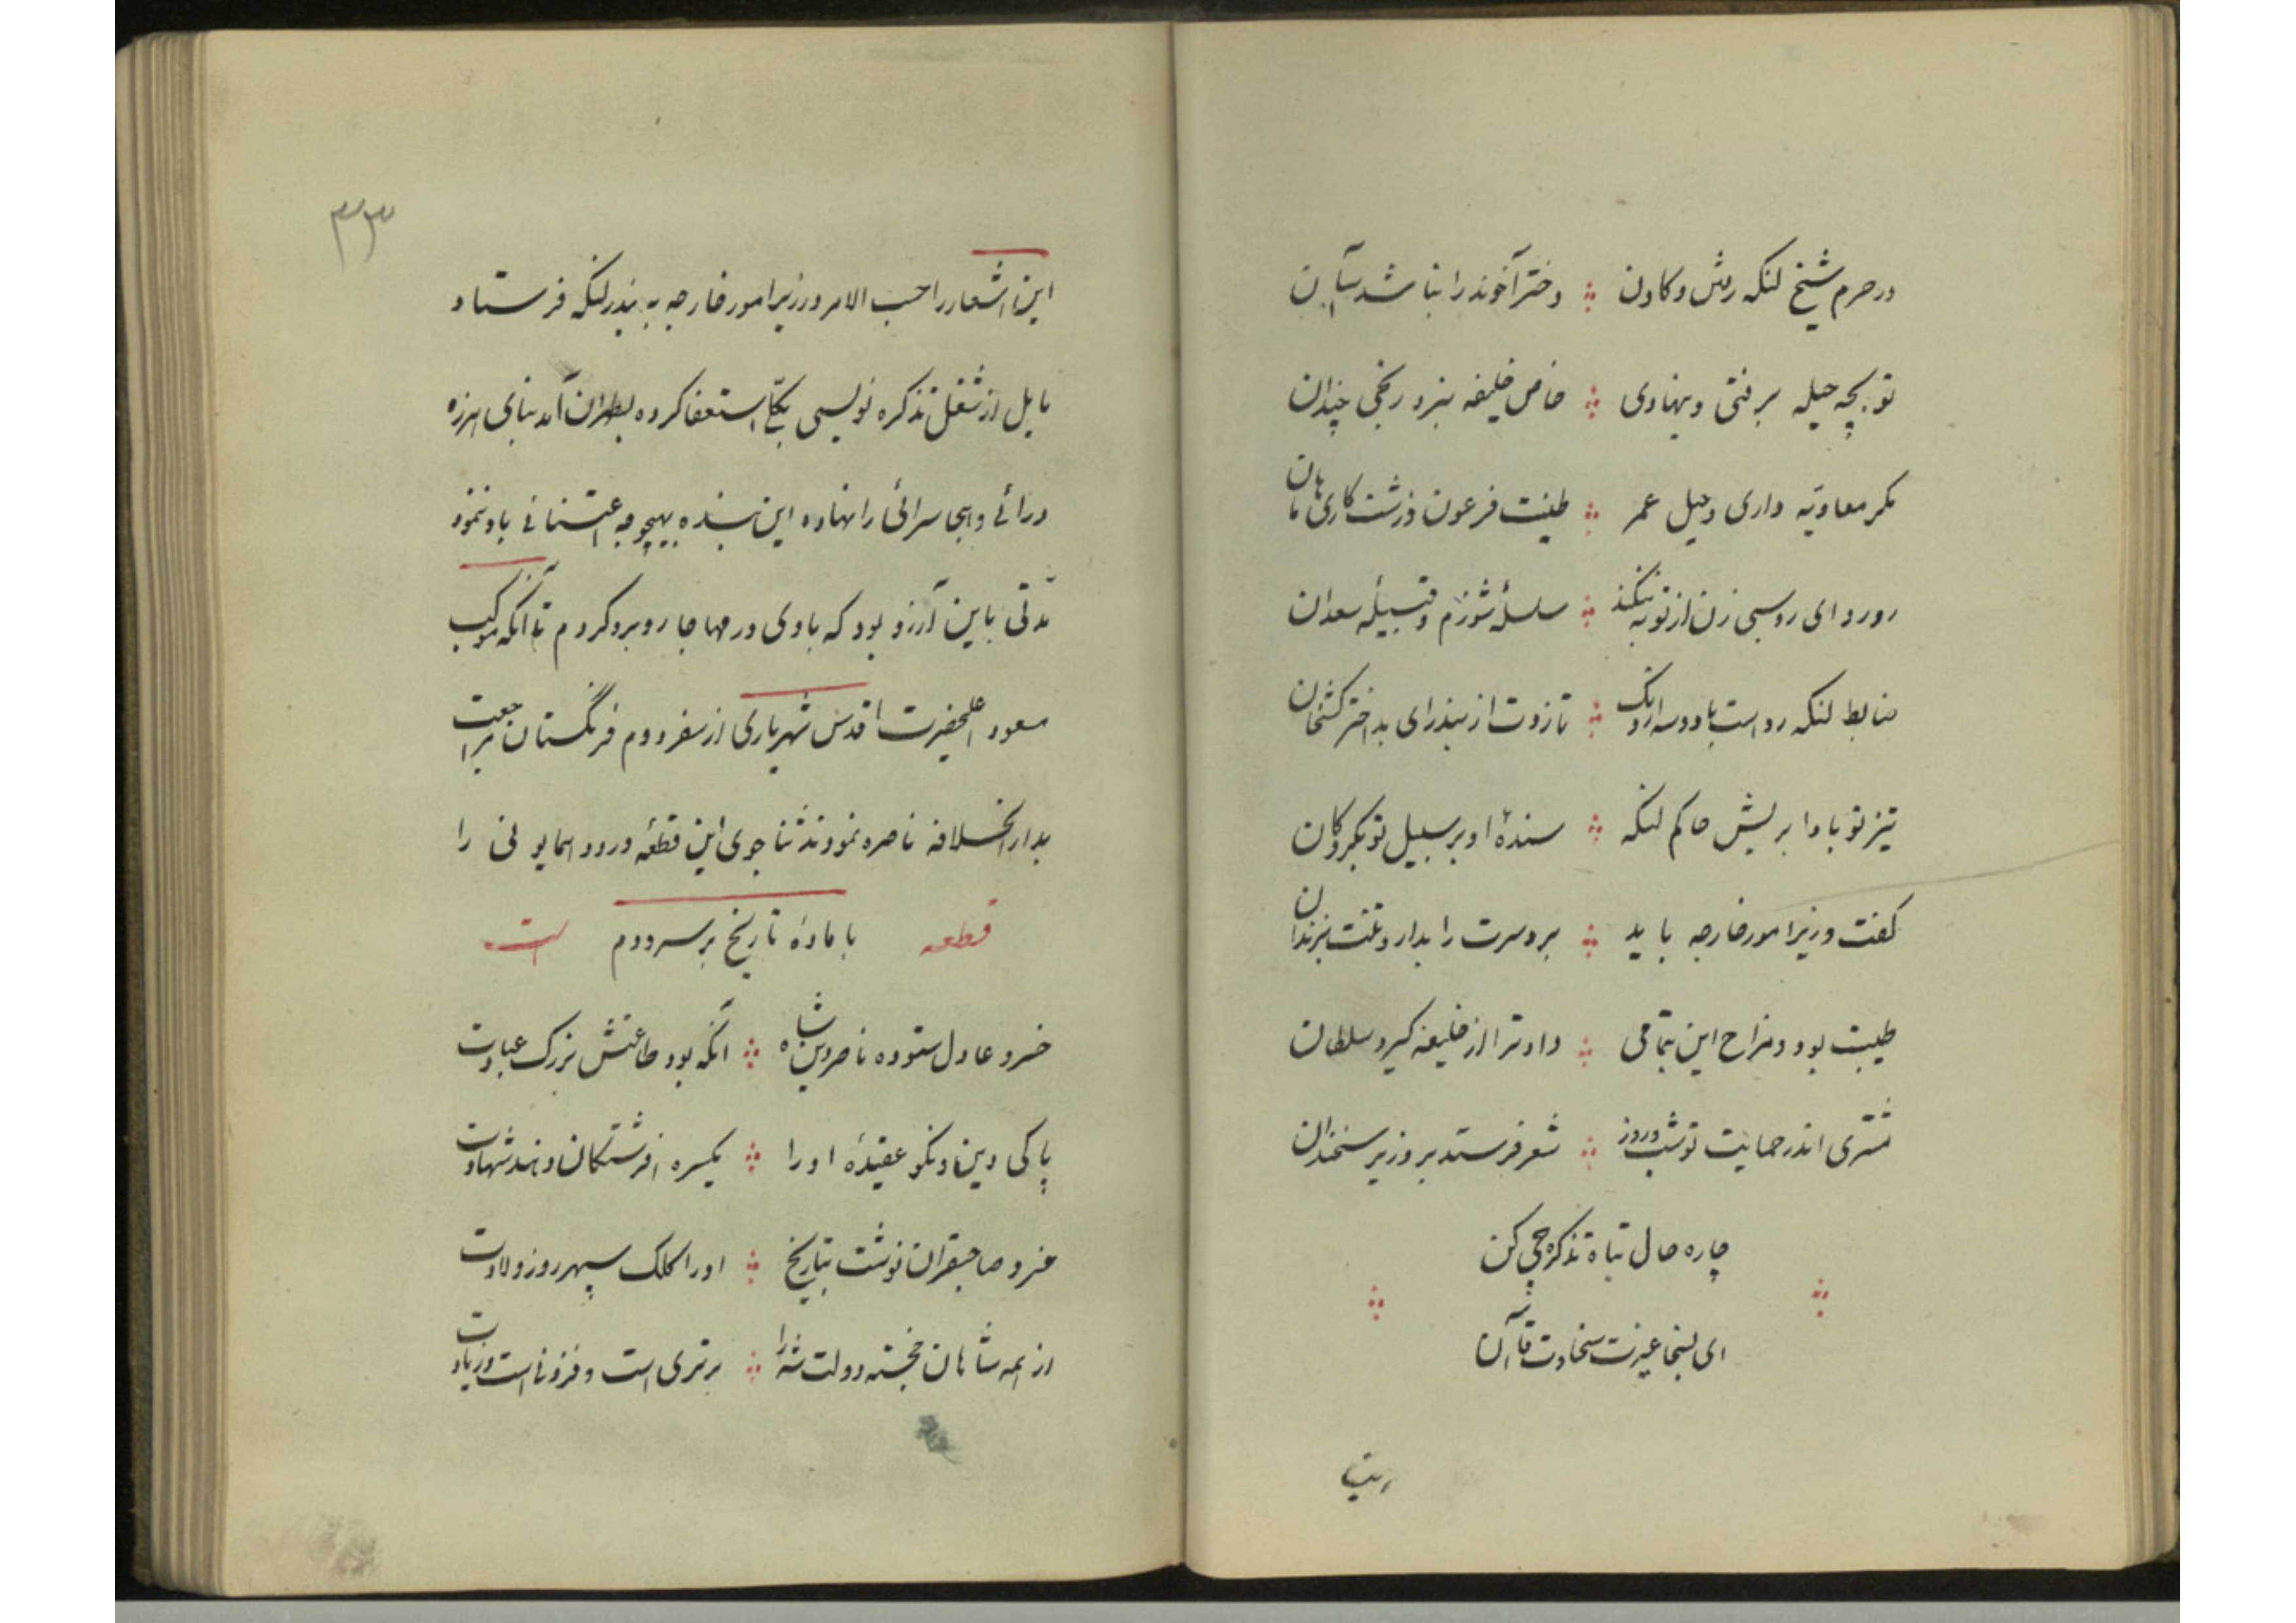 در حرم شیخ لنکه رفتی و کاون دختر آخوند را بنا شد
تو بچه حیله برفتی و بنهادی خاص خلیفه بنزد رنجی چندان
مکر معاویه داری و حیل عمر طینت فرعون و زشت کاری هامان
رو رو ای روسبی زن از تو به ننکند سلسلهٔ شوزم و قبیلهٔ سعدان
ضابط لنکه رو است با دو سه اردنک تا زودت از بندر ای بد اختر کشخان
تیز تو بادا بریش حاکم لنکه سندهٔ او بر سبیل تو
کفت وزیر امور خارجه باید بر دو سرت را بدار و تنت بزندان
طیبت بود و مزاح این بتمامی داد ترا از خلیفه کیرد سلطان
مشتری اندر حمایت تو شب و روز شعر فرستد بر وزیر سخندان
چاره حال تباه تذکره چی کن
ای بسخا غیرت سخاوت قاآن
این
۳۳
این اشعار را حسب الامر وزیر امور خارجه به بندر لنکه فرستاد
بایل از شغل تذکره نویسی بکلّی استعفا کرده بطهران آمد بنای هرزه
درائی و هجا سرائی را نهاده این بنده بهیچوجه اعتنائی باو ننمود
مدّتی باین آرزو بود که با وی در مهاجا روبرو کردم تا آنکه موکب
مسعود اعلیحضرت اقدس شهریاری از سفر دوم فرنگستان مراجعت
بدار الخلافه ناصره نمودند ثنا جوی این قطعه ورود همایونی را
قطعه با مادهٔ تاریخ بر سرودم است
خسرو عادل ستوده ناصر دین شاه آنکه بود طاعتش بزرک عبادت
پاکی دین و نکو عقیدهٔ او را یکسره افرشتکان دهند شهادت
خسرو صاحبقران نوشت بتاریخ او را کلک سپهر روز ولادت
از همه شاهان خجسته دولت شه را برتری است و فزونی است و زیادت